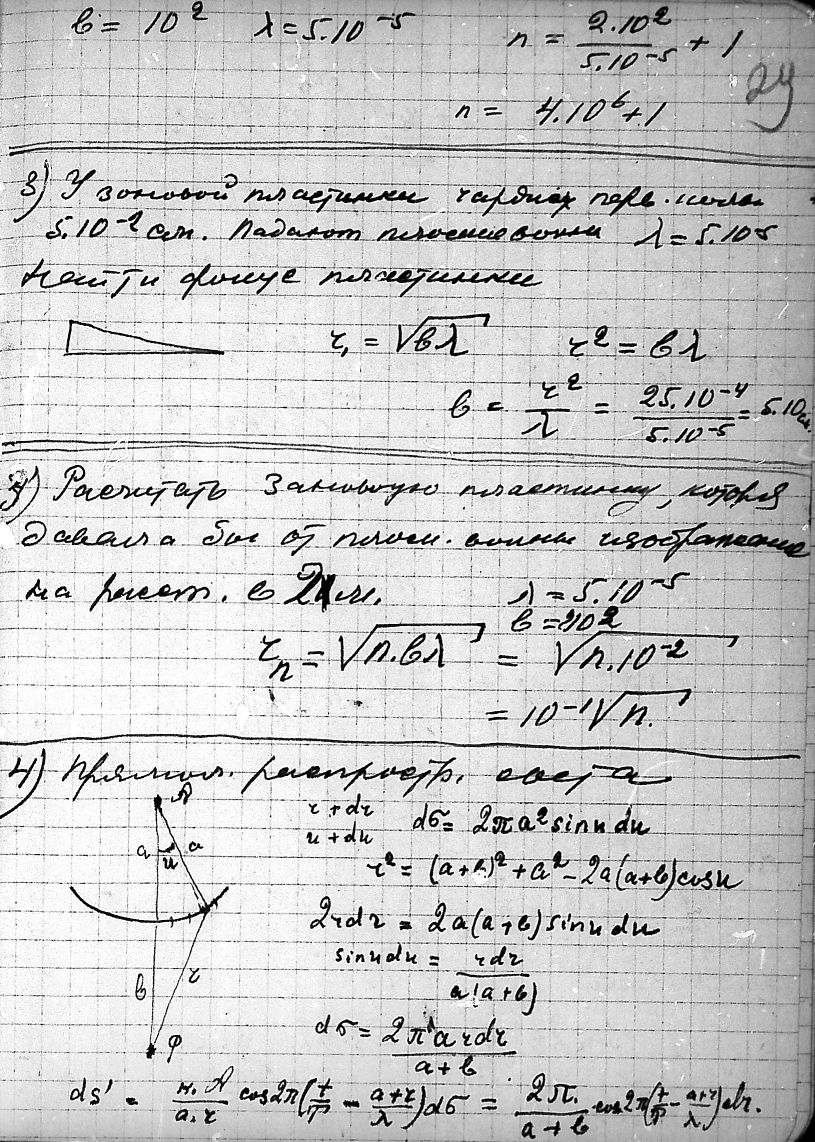 в = 10² λ = 5.10⁻⁵ n = 2.10²/5.10⁻⁵ + 1
24
n = 4.10⁶ + 1
3) У зоновой пластинки радиус перв. кольц.
5.10⁻² см. Падают плоские волны λ = 5.10⁻⁵
Найти фокус пластинки
r₁ = √вλ r² = вλ
в = r²/λ = 25.10⁻⁴/5.10⁻⁵ = 5.10 см.
Расчитать зоновую пластинку, которая
давала бы от плоск. волны изображение
на расст. в 2 м. λ = 5.10⁻⁵
в = 2.10²
rₙ = √n.вλ = √n.10⁻²
= 10⁻¹√n.
4) Прямол. распростр. света
A
r + dr
u + du dσ = 2πa² sin u du
a u a
r² = (a+в)² + a² – 2a(a+в) cos u
2rdr = 2a(a+в) sin u du
sin u du = rdr/a(a+в)
в r
dσ = 2π a rdr/a+в
P
ds' = к.A/a.r cos 2π(t/T – a+r/λ) dσ = 2π./a+в cos 2π(t/T – a+r/λ) dr.